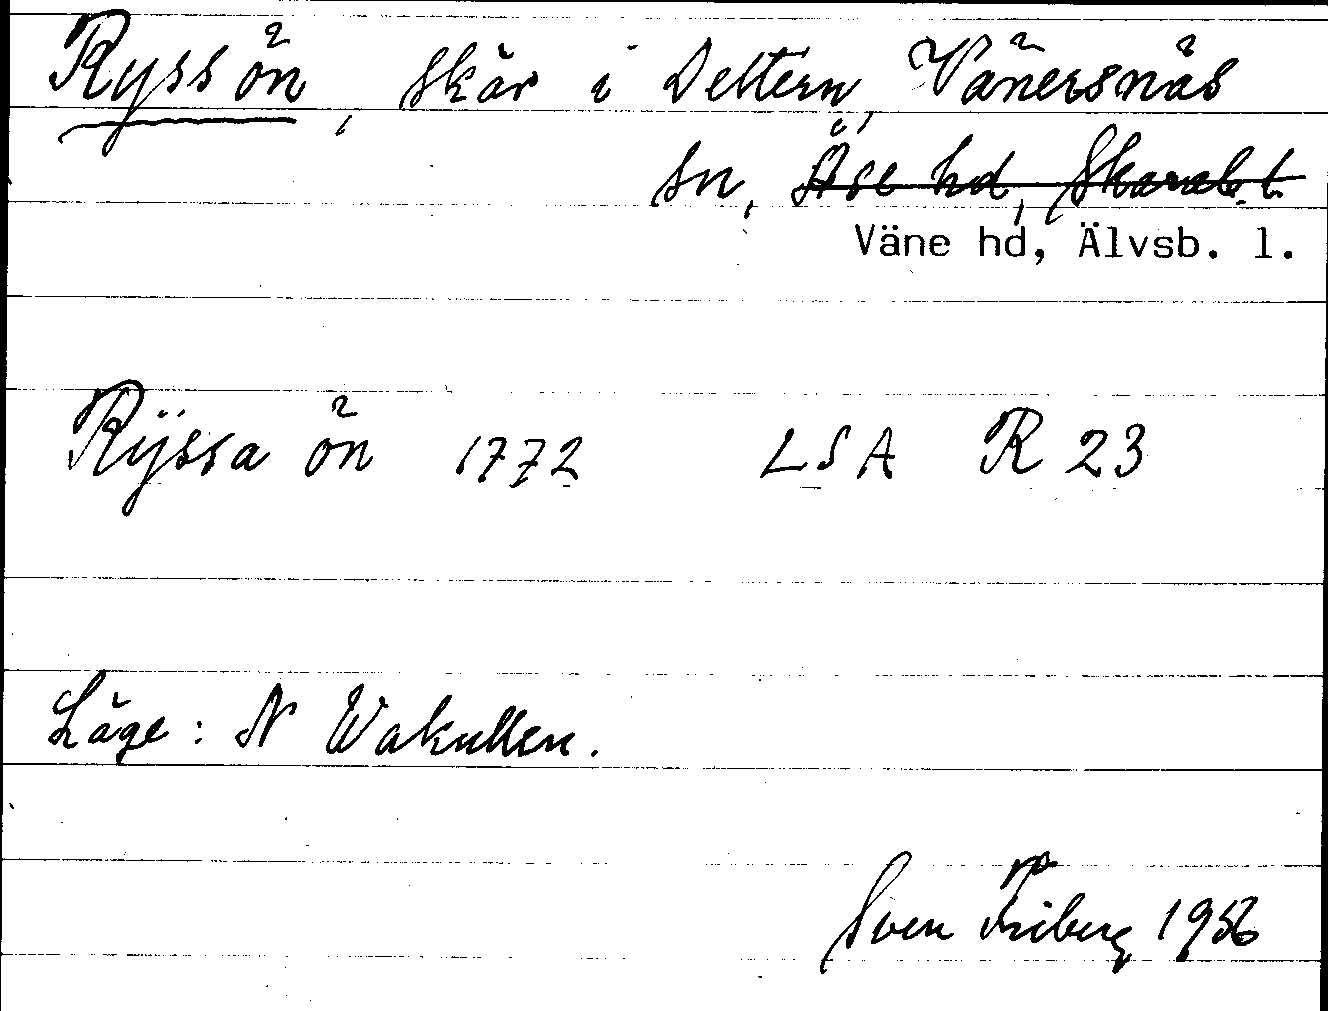 Ryssön, skär i Dettern, Vänersnäs
sn, Åse hd, Skarab. l.
Väne hd, Älvsb. l.
Rÿssa ön 1772 LSA R 23
Läge: N Wakullen.
Sven Friberg 1956